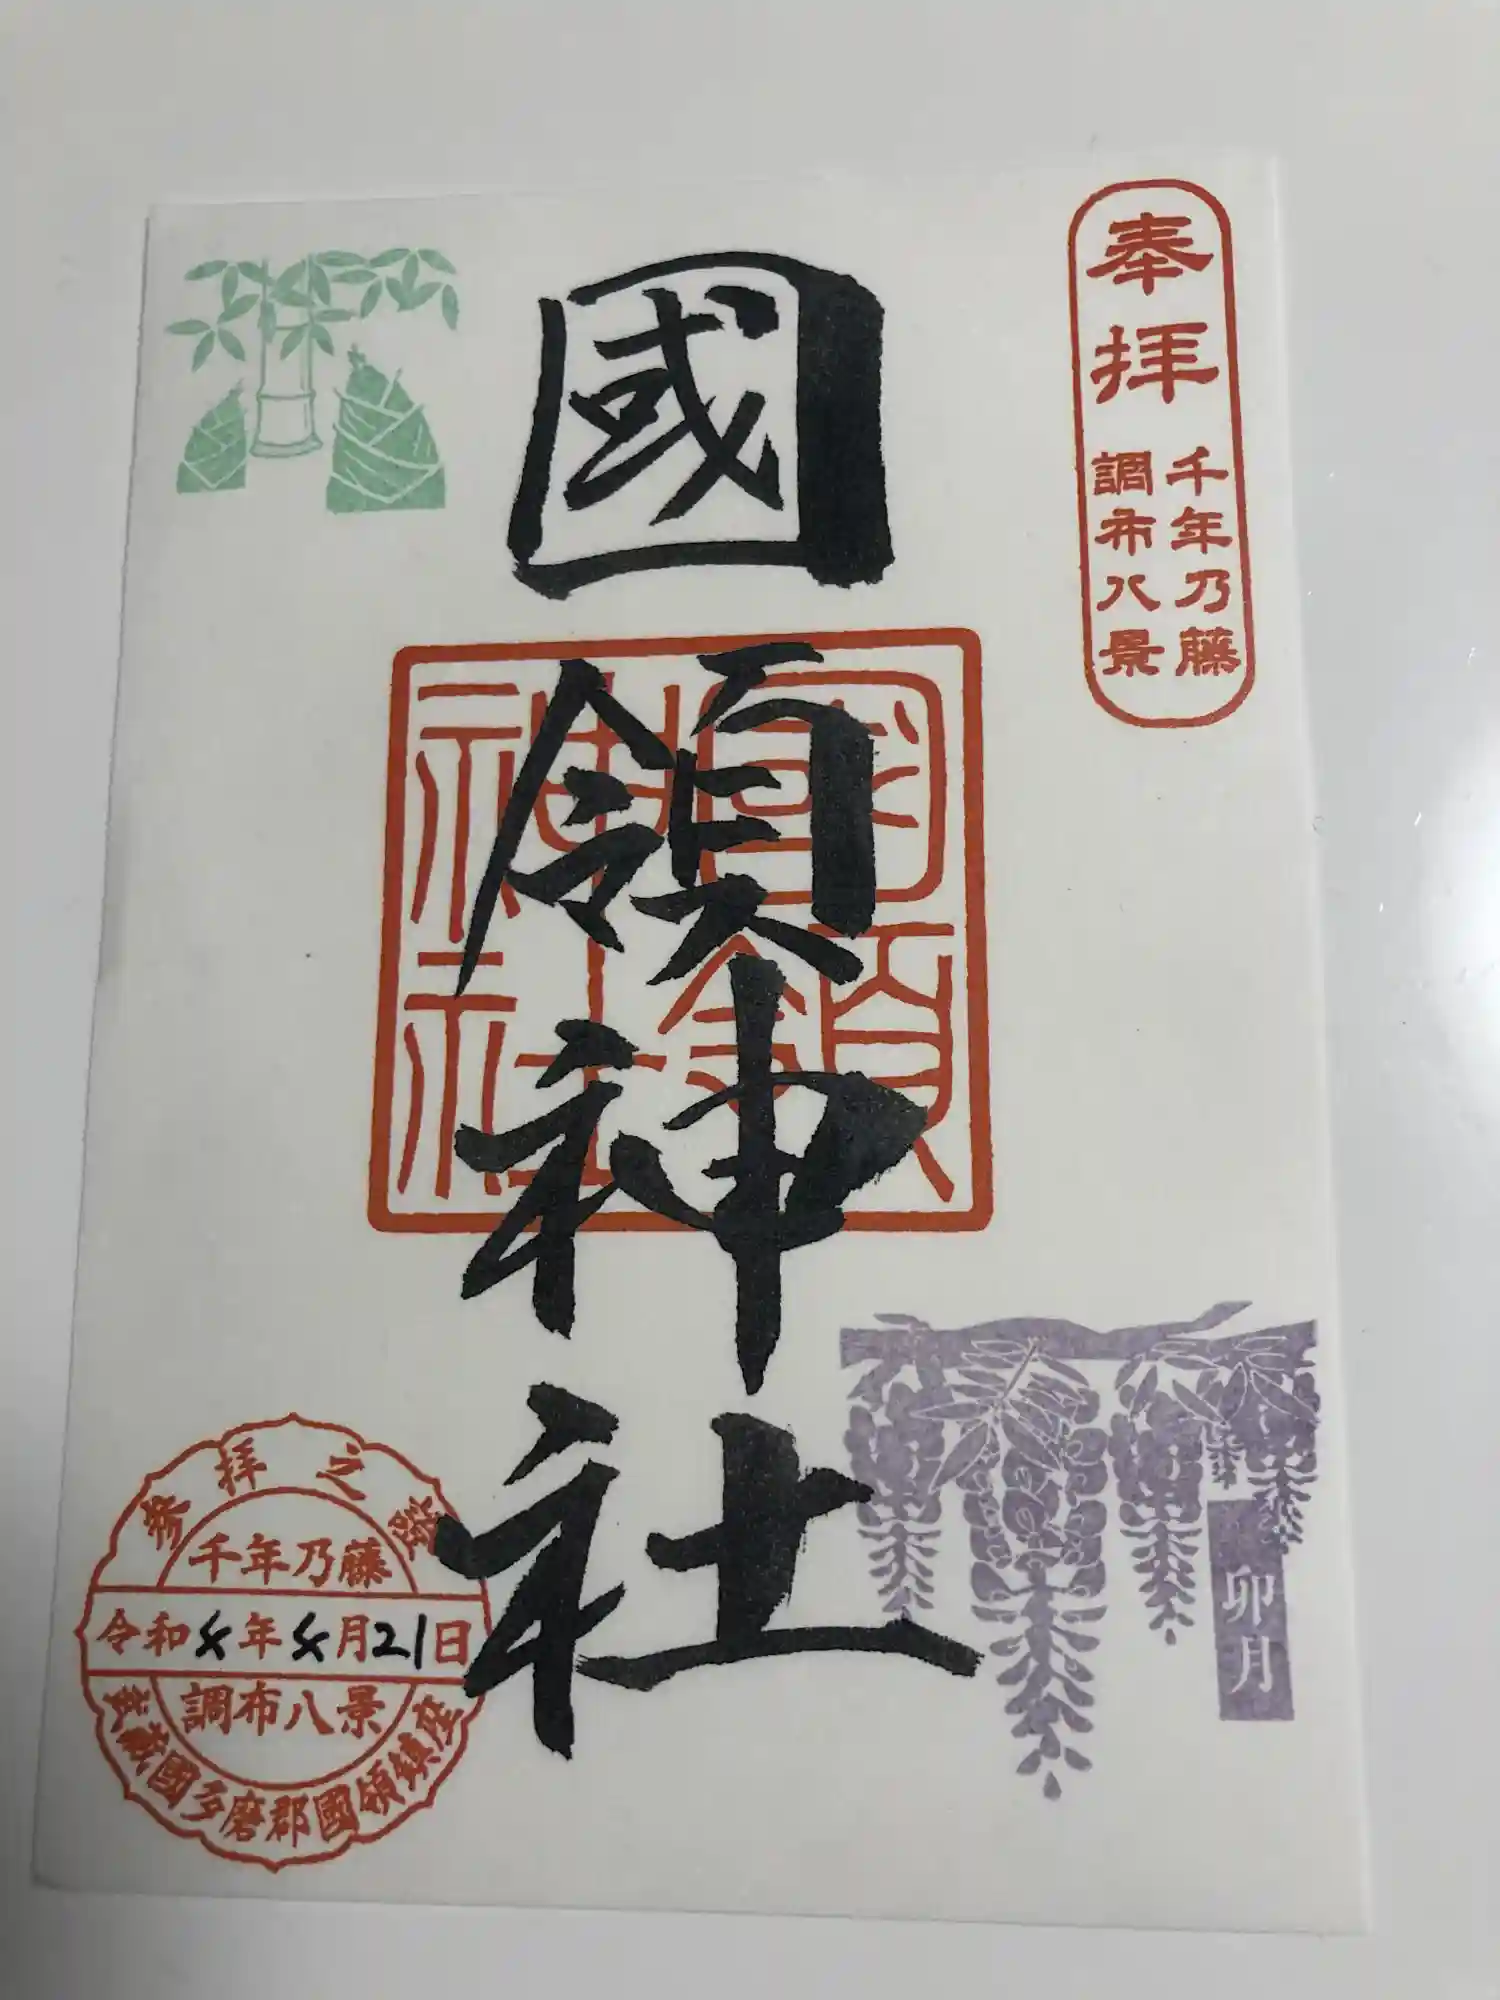 奉拝
千年乃藤
調布八景
國領神社
國領
神社
卯月
參拝之證
千年乃藤
令和4年4月21日
調布八景
武蔵國多磨郡國領鎮座